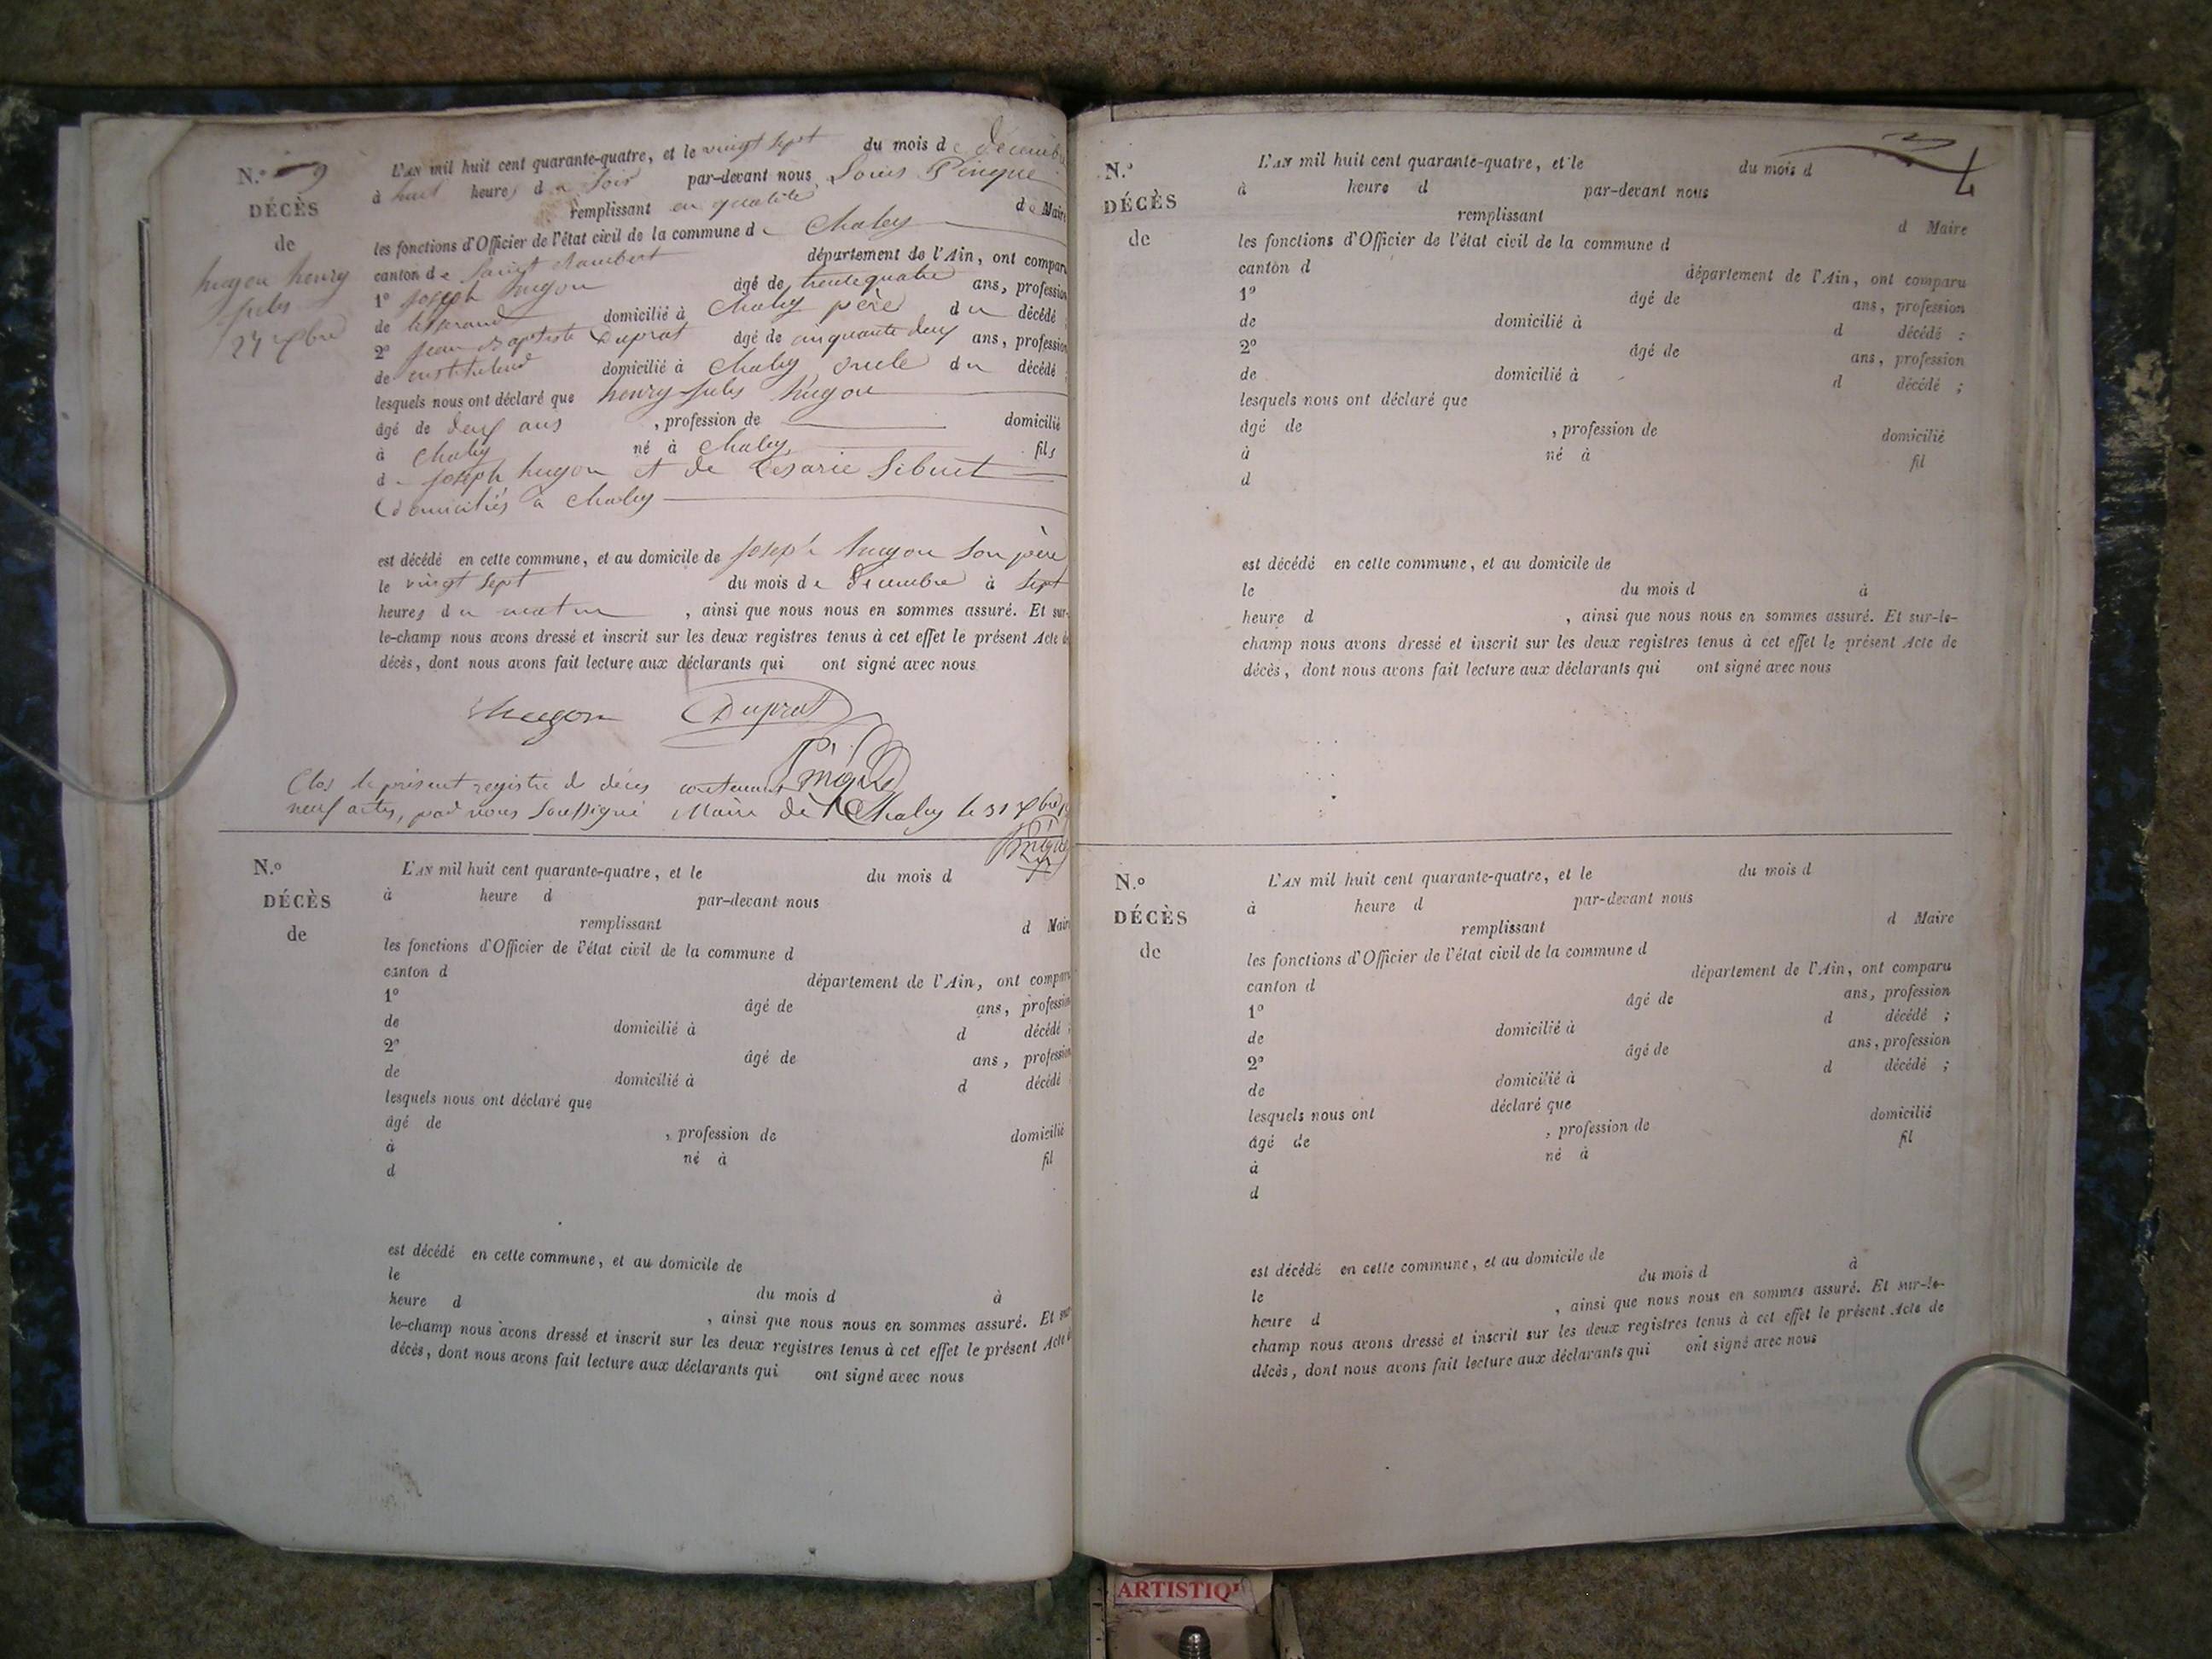 N.º 9
DÉCÈS
de
hugon henry
jules
27 xbre
L'AN mil huit cent quarante-quatre, et le vingt sept du mois de décembre
à huit heures du soir par-devant nous Louis Pingue
remplissant en qualité de Maire
les fonctions d'Officier de l'état civil de la commune de Chaley
canton de Saint Rambert département de l'Ain, ont comparu
1º Joseph hugon âgé de trente quatre ans, profession
de tisserand domicilié à Chaley père du décédé ;
2º Jean Baptiste Duprat âgé de cinquante deux ans, profession
de instituteur domicilié à Chaley oncle du décédé ;
lesquels nous ont déclaré que henry jules hugon
âgé de deux ans , profession de domicilié
à Chaley né à Chaley fils
de Joseph hugon et de Césarie Sibuet
domiciliés à Chaley
est décédé en cette commune, et au domicile de Joseph hugon son père
le vingt sept du mois de décembre à sept
heures du matin , ainsi que nous nous en sommes assuré. Et sur-
le-champ nous avons dressé et inscrit sur les deux registres tenus à cet effet le présent Acte de
décès, dont nous avons fait lecture aux déclarants qui ont signé avec nous
hugon Duprat
Clos le présent registre de décès contenant
neuf actes, par nous soussigné Maire de Chaley le 31 xbre
N.º
DÉCÈS
de
L'AN mil huit cent quarante-quatre, et le du mois d
à heure d par-devant nous
remplissant d Maire
les fonctions d'Officier de l'état civil de la commune d
canton d département de l'Ain, ont comparu
1º âgé de ans, profession
de domicilié à d décédé ;
2º âgé de ans, profession
de domicilié à d décédé
lesquels nous ont déclaré que
âgé de , profession de domicilié
à né à fil
d
est décédé en cette commune, et au domicile de
le du mois d à
heure d , ainsi que nous nous en sommes assuré. Et sur
le-champ nous avons dressé et inscrit sur les deux registres tenus à cet effet le présent Acte
décès, dont nous avons fait lecture aux déclarants qui ont signé avec nous
N.º
DÉCÈS
de
L'AN mil huit cent quarante-quatre, et le du mois d
à heure d par-devant nous
remplissant d Maire
les fonctions d'Officier de l'état civil de la commune d
canton d département de l'Ain, ont comparu
1º âgé de ans, profession
de domicilié à d décédé ;
2º âgé de ans, profession
de domicilié à d décédé ;
lesquels nous ont déclaré que
âgé de , profession de domicilié
à né à fil
d
est décédé en cette commune, et au domicile de
le du mois d à
heure d , ainsi que nous nous en sommes assuré. Et sur-le-
champ nous avons dressé et inscrit sur les deux registres tenus à cet effet le présent Acte de
décès, dont nous avons fait lecture aux déclarants qui ont signé avec nous
N.º
DÉCÈS
de
L'AN mil huit cent quarante-quatre, et le du mois d
à heure d par-devant nous
remplissant d Maire
les fonctions d'Officier de l'état civil de la commune d
canton d département de l'Ain, ont comparu
1º âgé de ans, profession
de domicilié à d décédé ;
2º âgé de ans, profession
de domicilié à d décédé ;
lesquels nous ont déclaré que
âgé de , profession de domicilié
à né à fil
d
est décédé en cette commune, et au domicile de
le du mois d à
heure d , ainsi que nous nous en sommes assuré. Et sur-le-
champ nous avons dressé et inscrit sur les deux registres tenus à cet effet le présent Acte de
décès, dont nous avons fait lecture aux déclarants qui ont signé avec nous
ARTISTIQ